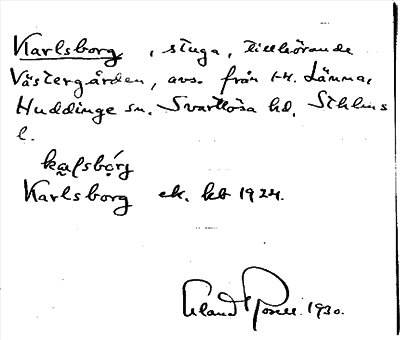 Karlsborg, stuga, tillhörande
Västergården, avs. från 1/4 Länna,
Huddinge sn. Svartlösa hd, Sthlms
l.
Karlsborg ek. kb 1924.
1930.